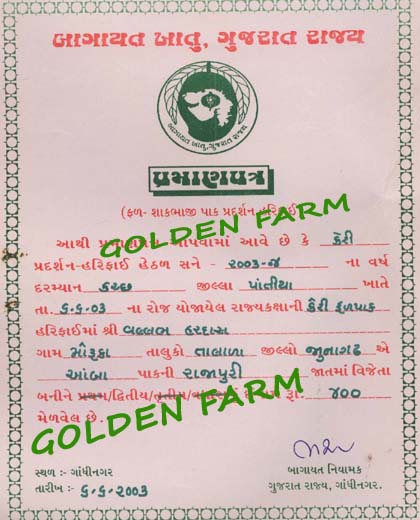 બાગાયત ખાતુ, ગુજરાત રાજ્ય
બાગાયત ખાતુ, ગુજરાત રાજ્ય
પ્રમાણપત્ર
(ફળ- શાકભાજી પાક પ્રદર્શન-હરિફાઈ)
GOLDEN FARM
આથી પ્રમાણપત્ર આપવામાં આવે છે કે કેરી
પ્રદર્શન-હરિફાઈ હેઠળ સને - ૨૦૦૩-૪ ના વર્ષ
દરમ્યાન કચ્છ જીલ્લા પાંતીયા ખાતે
તા. ૬-૬-૦૩ ના રોજ યોજાયેલ રાજ્યકક્ષાની કેરી ફળપાક
હરિફાઈમાં શ્રી વલ્લભ હરદાસ
ગામ મોરૂકા તાલુકો તાલાળા જીલ્લો જુનાગઢ એ
આંબા પાકની રાજાપુરી જાતમાં વિજેતા
બનીને પ્રથમ/દ્વિતીય/તૃતીય/ રૂા. ૪૦૦
મેળવેલ છે.
GOLDEN FARM
સ્થળ :- ગાંધીનગર
તારીખ :- ૬-૬-૨૦૦૩
બાગાયત નિયામક
ગુજરાત રાજ્ય, ગાંધીનગર.